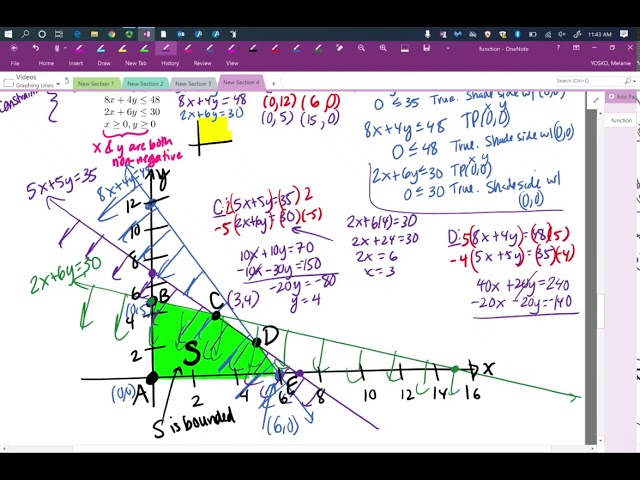 11:43 AM
function - OneNote
YOSKO, Melanie
Videos
Graphing Lines
New Section 1
New Section 2
New Section 3
New Section 4
Search (Ctrl+E)
Add Page
constraints
8x + 4y ≤ 48
2x + 6y ≤ 30
x ≥ 0, y ≥ 0
x & y are both
non-negative
8x+4y=48 (0,12) (6,0)
2x+6y=30 (0,5) (15,0)
0 ≤ 35 True. Shade side w/(0,0)
8x+4y≤48 TP(0,0)
x y
0 ≤ 48 True. Shade side w/(0,0)
2x+6y≤30 TP(0,0)
x y
0 ≤ 30 True. Shade side w/
(0,0)
5x+5y=35
8x+4y=48
2x+6y=30
C: 2(5x+5y)=(35)2
-5(2x+6y)=(30)(-5)
10x+10y=70
-10x-30y=-150
-20y=-80
y=4
2x+6(4)=30
2x+24=30
2x=6
x=3
D: 5(8x+4y)=(48)(5)
-4(5x+5y)=(35)(-4)
40x+20y=240
-20x-20y=-140
y
12
10
8
6
4
2
B
(0,5)
C
(3,4)
D
S
E
A
(0,0)
2 4 6 8 10 12 14 16
x
(6,0)
S is bounded